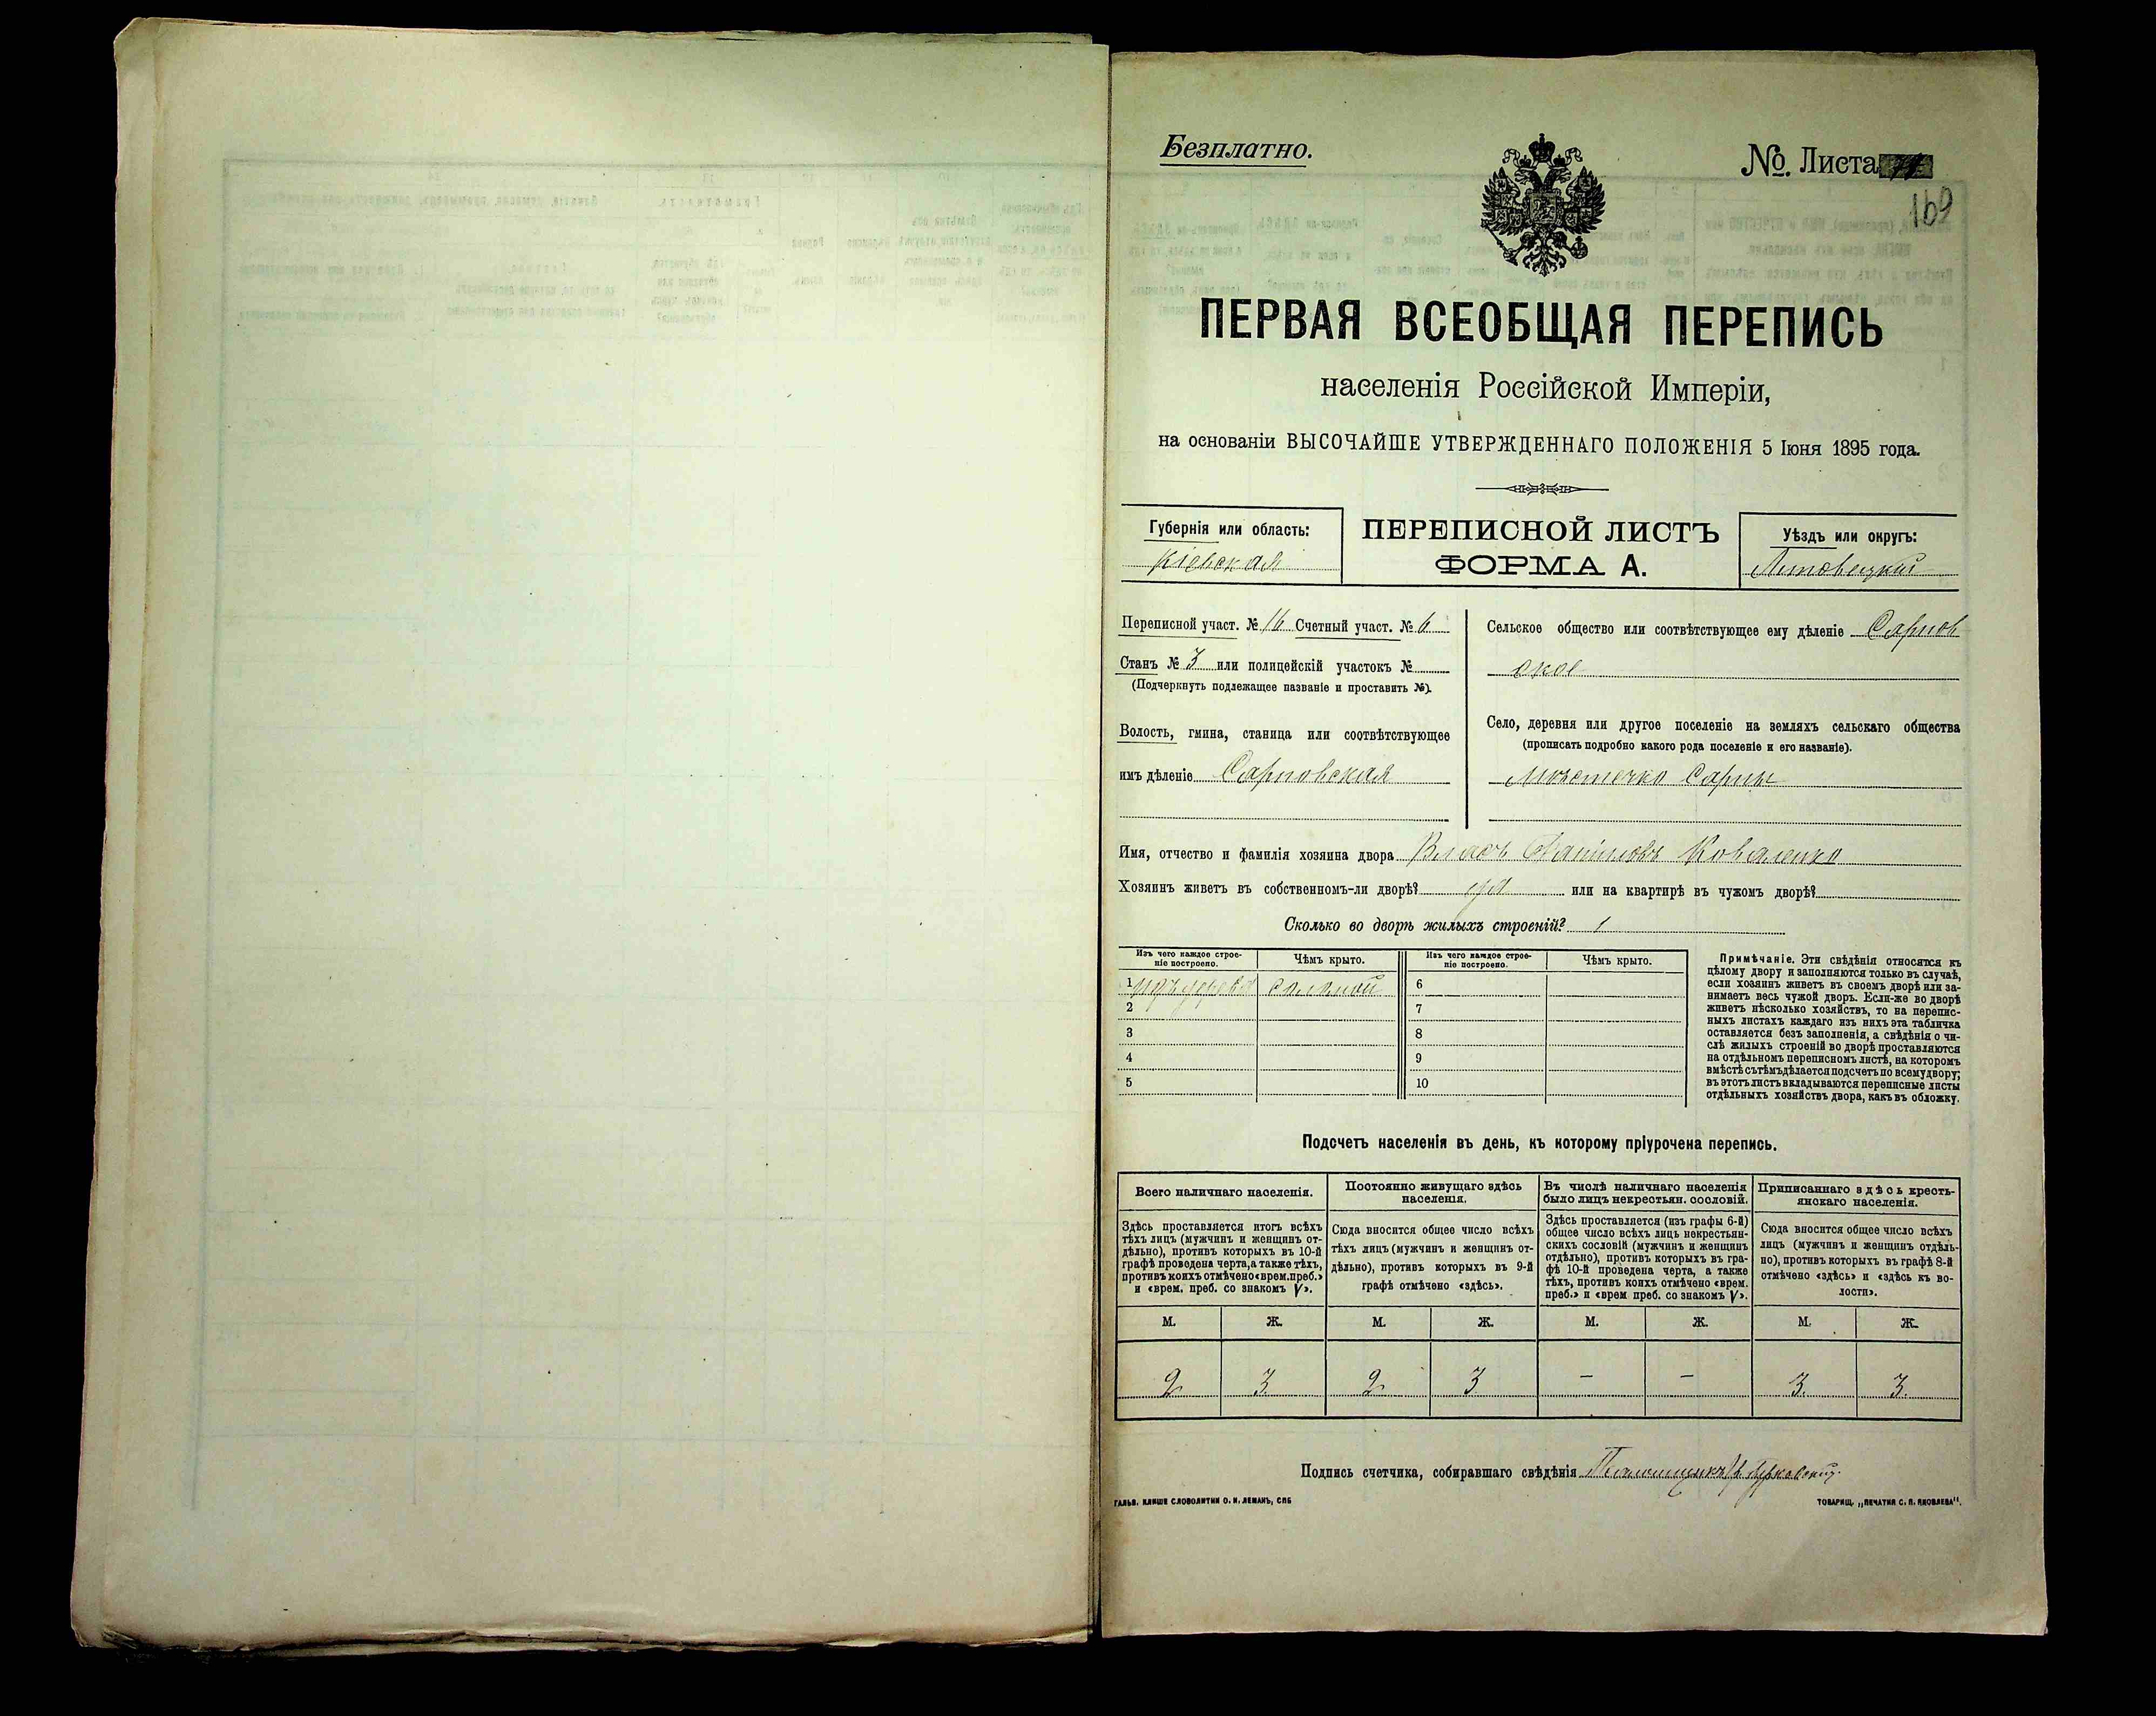 Безплатно.
№. Листа
169
ПЕРВАЯ ВСЕОБЩАЯ ПЕРЕПИСЬ
населенія Россійской Имперіи,
на основаніи ВЫСОЧАЙШЕ УТВЕРЖДЕННАГО ПОЛОЖЕНІЯ 5 Іюня 1895 года.
Губернія или область:
Кіевская
ПЕРЕПИСНОЙ ЛИСТЪ
ФОРМА А.
Уѣздъ или округъ:
Липовецкій
Переписной участ. № 16 Счетный участ. № 6
Станъ № 3 или полицейскій участокъ №
(Подчеркнуть подлежащее названіе и проставить №).
Волость, гмина, станица или соотвѣтствующее
имъ дѣленіе Сарновская
Сельское общество или соотвѣтствующее ему дѣленіе Сарнов
ское
Село, деревня или другое поселеніе на земляхъ сельскаго общества
(прописать подробно какого рода поселеніе и его названіе).
Мѣстечко Сарны
Имя, отчество и фамилія хозяина двора Власъ Коваленко
Хозяинъ живетъ въ собственномъ-ли дворѣ? да или на квартирѣ въ чужомъ дворѣ?
Сколько во дворѣ жилыхъ строеній? 1
Изъ чего каждое строе-
ніе построено.
Чѣмъ крыто.
Изъ чего каждое строе-
ніе построено.
Чѣмъ крыто.
1 изъ дерева соломой 6
2 7
3 8
4 9
5 10
Примѣчаніе. Эти свѣдѣнія относятся къ
цѣлому двору и заполняются только въ случаѣ,
если хозяинъ живетъ въ своемъ дворѣ или за-
нимаетъ весь чужой дворъ. Если-же во дворѣ
живетъ нѣсколько хозяйствъ, то на перепис-
ныхъ листахъ каждаго изъ нихъ эта табличка
оставляется безъ заполненія, а свѣдѣнія о чи-
слѣ жилыхъ строеній во дворѣ проставляются
на отдѣльномъ переписномъ листѣ, на которомъ
вмѣстѣ съ тѣмъ дѣлается подсчетъ по всему двору;
въ этотъ листъ вкладываются переписные листы
отдѣльныхъ хозяйствъ двора, какъ въ обложку.
Подсчетъ населенія въ день, къ которому пріурочена перепись.
Всего наличнаго населенія.
Здѣсь проставляется итогъ всѣхъ
тѣхъ лицъ (мужчинъ и женщинъ от-
дѣльно), противъ которыхъ въ 10-й
графѣ проведена черта, а также тѣхъ,
противъ коихъ отмѣчено «врем. преб.»
и «врем. преб. со знакомъ V».
Постоянно живущаго здѣсь
населенія.
Сюда вносится общее число всѣхъ
тѣхъ лицъ (мужчинъ и женщинъ от-
дѣльно), противъ которыхъ въ 9-й
графѣ отмѣчено «здѣсь».
Въ числѣ наличнаго населенія
было лицъ некрестьян. сословій.
Здѣсь проставляется (изъ графы 6-й)
общее число всѣхъ лицъ некрестьян-
скихъ сословій (мужчинъ и женщинъ
отдѣльно), противъ которыхъ въ гра-
фѣ 10-й проведена черта, а также
тѣхъ, противъ коихъ отмѣчено «врем.
преб.» и «врем преб. со знакомъ V».
Приписаннаго здѣсь кресть-
янскаго населенія.
Сюда вносится общее число всѣхъ
лицъ (мужчинъ и женщинъ отдѣль-
но), противъ которыхъ въ графѣ 8-й
отмѣчено «здѣсь» и «здѣсь къ во-
лости».
М. Ж. М. Ж. М. Ж. М. Ж.
2 3 2 3 — — 3 3
Подпись счетчика, собиравшаго свѣдѣнія
ГАЛЬВ. КЛИШЕ СЛОВОЛИТНИ О. И. ЛЕМАНЪ, СПБ
ТОВАРИЩ. „ПЕЧАТНЯ С. П. ЯКОВЛЕВА".